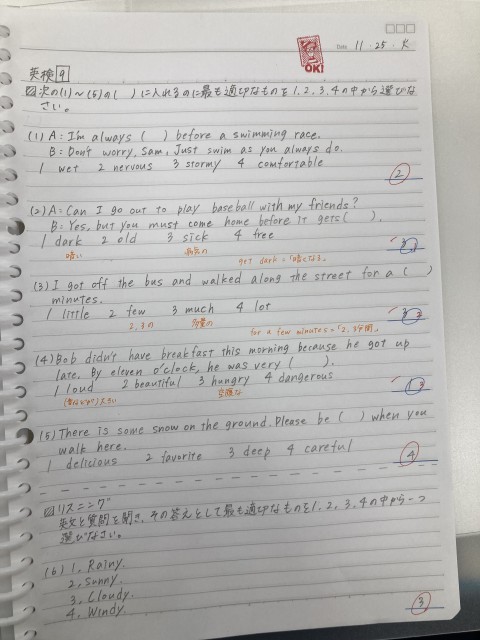 OK!
Date 11・25・火
英検 9
次の(1)〜(5)の( )に入れるのに最も適切なものを1,2,3,4の中から選びな
さい。
(1) A: I'm always ( ) before a swimming race.
B: Don't worry, Sam. Just swim as you always do.
1 wet 2 nervous 3 stormy 4 comfortable
2
(2) A: Can I go out to play baseball with my friends?
B: Yes, but you must come home before it gets ( ).
1 dark 2 old 3 sick 4 free
暗い 病気の get dark=「暗くなる」
3 1
(3) I got off the bus and walked along the street for a ( )
minutes.
1 little 2 few 3 much 4 lot
2,3の 多量の for a few minutes=「2,3分間」
3 2
(4) Bob didn't have breakfast this morning because he got up
late. By eleven o'clock, he was very ( ).
1 loud 2 beautiful 3 hungry 4 dangerous
(声などが)大きい 空腹な
1 3
(5) There is some snow on the ground. Please be ( ) when you
walk here.
1 delicious 2 favorite 3 deep 4 careful
4
リスニング
英文と質問を聞き、その答えとして最も適切なものを1,2,3,4の中から一つ
選びなさい。
(6) 1, Rainy.
2, Sunny.
3, Cloudy.
4, Windy.
3